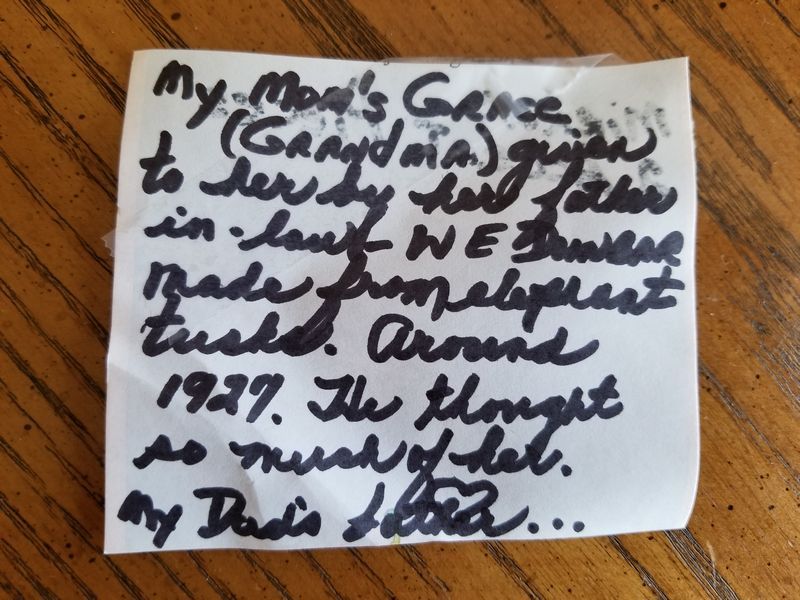 My Mom's Grace
(Grandma) given
to her by her father
in-law W E Dunbar
Made from elephant
tusks. Around
1927. He thought
so much of her.
My Dad's father...